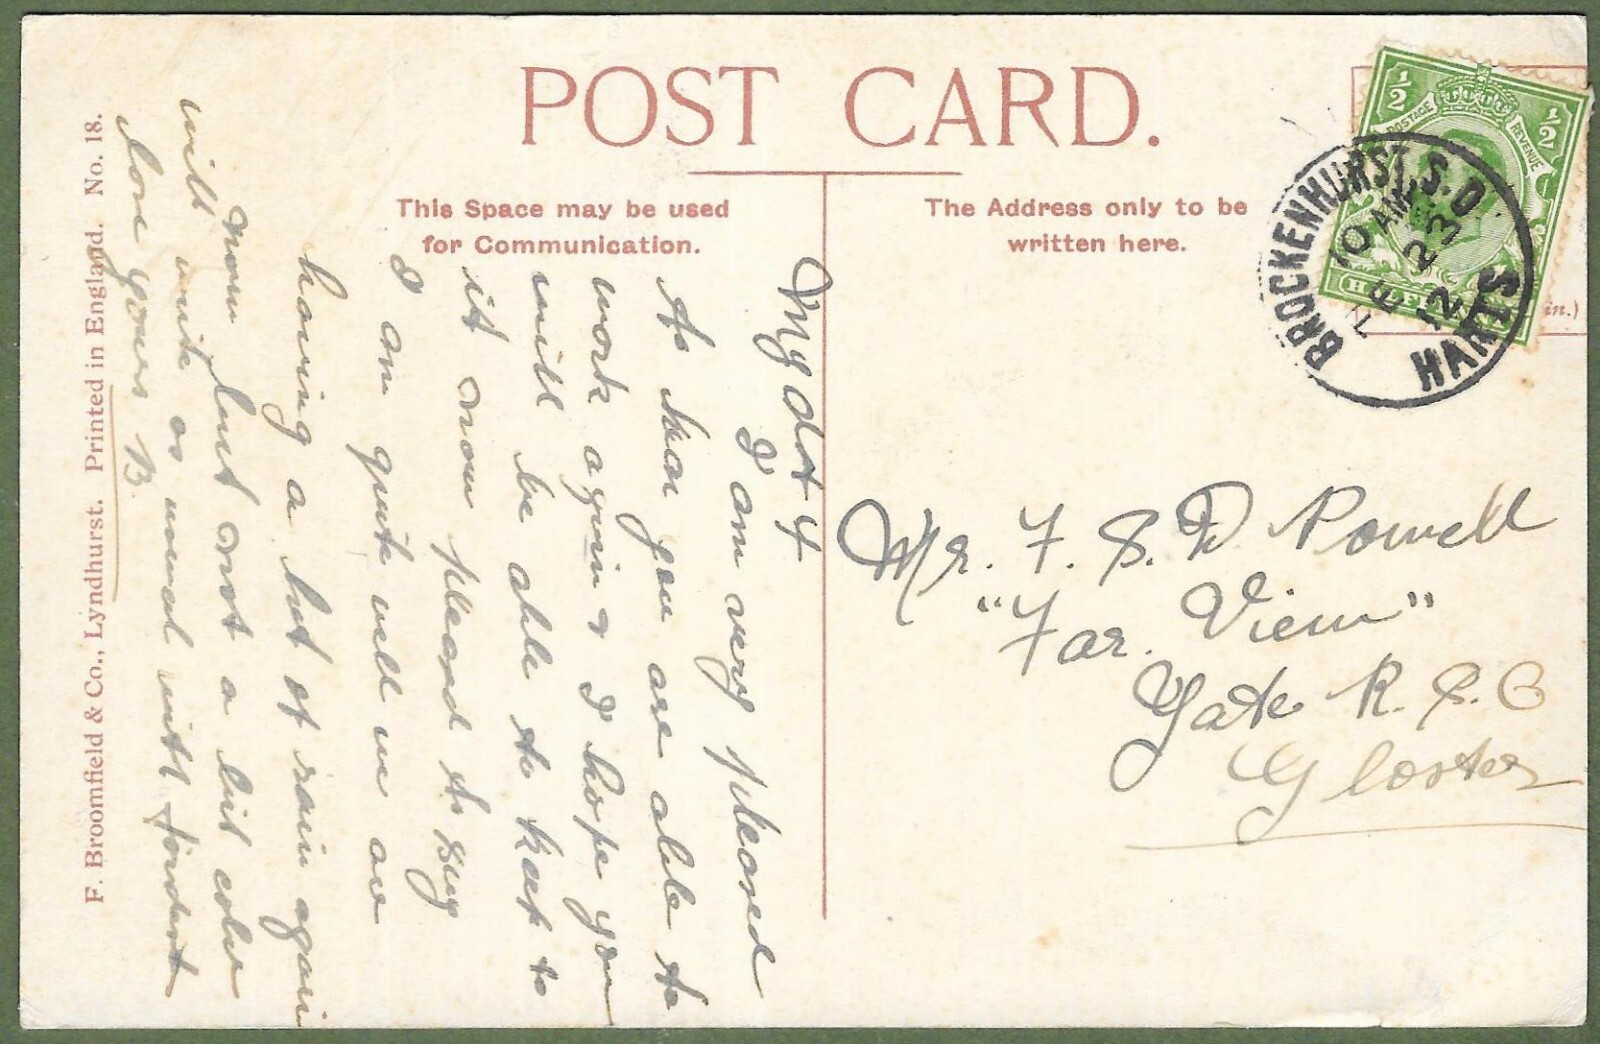 POST CARD.
This Space may be used
for Communication.
The Address only to be
written here.
½ ½
POSTAGE REVENUE
BROCKENHURST S.O.
10 AM
FE 23
12
HANTS
in.)
My dot 4
I am very pleased
to hear you are able to
work again & I hope you
will be able to keep to
it now pleased to say
I am quite well we are
having a lot of rain again
now but not a bit colder
will write as usual with fondest
love yours B.
Mr. F. S. D Powell
"Far. View"
Yate R. S. O
Gloster
F. Broomfield & Co., Lyndhurst. Printed in England. No. 18.